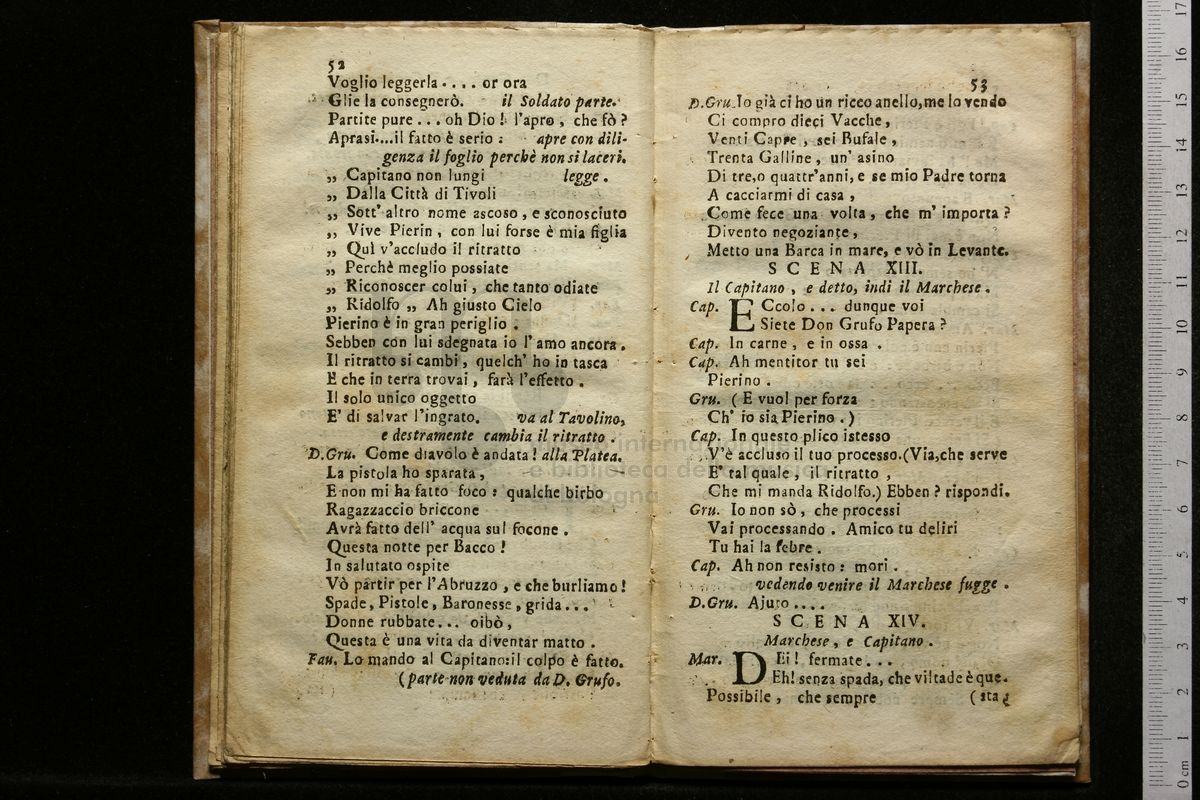 52
Voglio leggerla .... or ora
Glie la consegnerò. il Soldato parte.
Partite pure ... oh Dio! l'apro, che fò?
Aprasi....il fatto è serio: apre con dili-
genza il foglio perchè non si laceri.
„ Capitano non lungi legge.
„ Dalla Città di Tivoli
„ Sott' altro nome ascoso, e sconosciuto
„ Vive Pierin, con lui forse è mia figlia
„ Quì v'accludo il ritratto
„ Perchè meglio possiate
„ Riconoscer colui, che tanto odiate
„ Ridolfo „ Ah giusto Cielo
Pierino è in gran periglio.
Sebben con lui sdegnata io l'amo ancora.
Il ritratto si cambi, quelch' ho in tasca
E che in terra trovai, farà l'effetto.
Il solo unico oggetto
E' di salvar l'ingrato. va al Tavolino,
e destramente cambia il ritratto.
D.Gru. Come diavolo è andata! alla Platea.
La pistola ho sparata,
E non mi ha fatto foco: qualche birbo
Ragazzaccio briccone
Avrà fatto dell' acqua sul focone.
Questa notte per Bacco!
In salutato ospite
Vò partir per l'Abruzzo, e che burliamo!
Spade, Pistole, Baronesse, grida...
Donne rubbate... oibò,
Questa è una vita da diventar matto.
Fau. Lo mando al Capitano: il colpo è fatto.
(parte non veduta da D. Grufo.
53
D.Gru. Io già ci ho un ricco anello, me lo vendo
Ci compro dieci Vacche,
Venti Capre, sei Bufale,
Trenta Galline, un' asino
Di tre, o quattr'anni, e se mio Padre torna
A cacciarmi di casa,
Come fece una volta, che m' importa?
Divento negoziante,
Metto una Barca in mare, e vò in Levante.
SCENA XIII.
Il Capitano, e detto, indi il Marchese.
Cap. ECcolo... dunque voi
Siete Don Grufo Papera?
Cap. In carne, e in ossa.
Cap. Ah mentitor tu sei
Pierino.
Gru. (E vuol per forza
Ch' io sia Pierino.)
Cap. In questo plico istesso
V'è accluso il tuo processo. (Via, che serve
E' tal quale, il ritratto,
Che mi manda Ridolfo.) Ebben? rispondi.
Gru. Io non sò, che processi
Vai processando. Amico tu deliri
Tu hai la febre.
Cap. Ah non resisto: mori.
vedendo venire il Marchese fugge.
D.Gru. Ajuto....
SCENA XIV.
Marchese, e Capitano.
Mar. DEi! fermate...
Eh! senza spada, che viltade è que.
Possibile, che sempre (sta?
museo internazionale
e biblioteca della musica
di bologna
0 cm 1 2 3 4 5 6 7 8 9 10 11 12 13 14 15 16 17